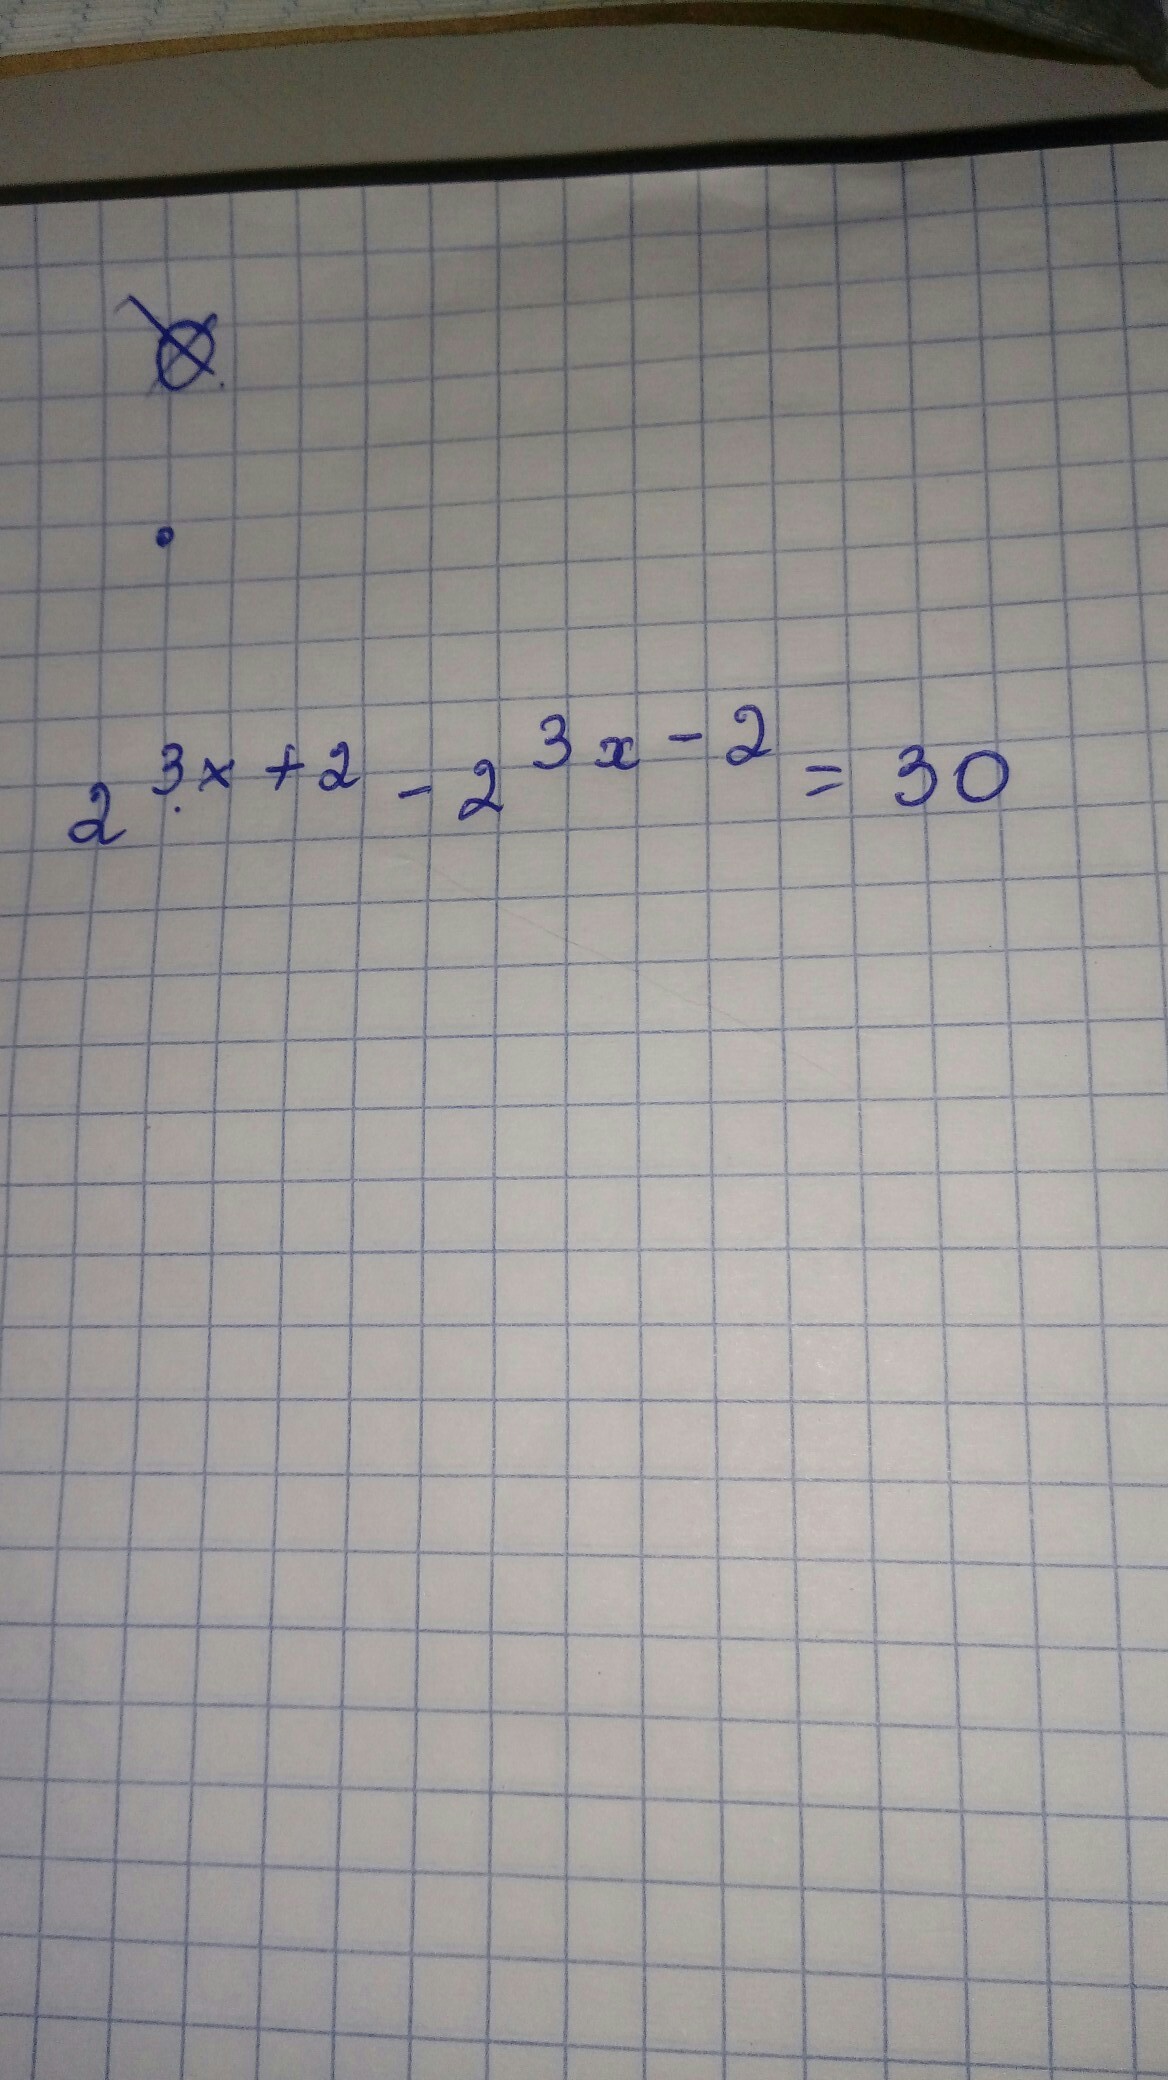 2^{3x+2} - 2^{3x-2} = 30